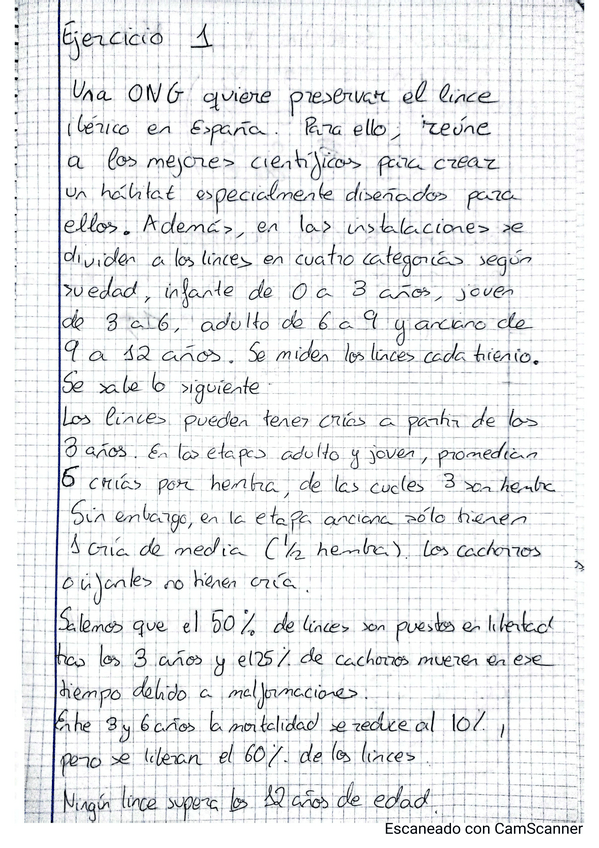 Ejercicio 1
Una ONG quiere preservar el lince
ibérico en España. Para ello, reúne
a los mejores científicos para crear
un hábitat especialmente diseñados para
ellos. Además, en las instalaciones se
dividen a los linces en cuatro categorías según
su edad, infante de 0 a 3 años, joven
de 3 a 6, adulto de 6 a 9 y anciano de
9 a 12 años. Se miden los linces cada trienio.
Se sabe lo siguiente
Los linces pueden tener crías a partir de los
3 años. En las etapas adulto y joven, promedian
6 crías por hembra, de las cuales 3 son hembra
Sin embargo, en la etapa anciana sólo tienen
1 cría de media (1/2 hembra). Los cachorros
o infantes no tienen cría.
Sabemos que el 50% de linces son puestos en libertad
tras los 3 años y el 25% de cachorros mueren en ese
tiempo debido a malformaciones.
Entre 3 y 6 años la mortalidad se reduce al 10%,
pero se liberan el 60% de los linces
Ningún lince supera los 12 años de edad.
Escaneado con CamScanner